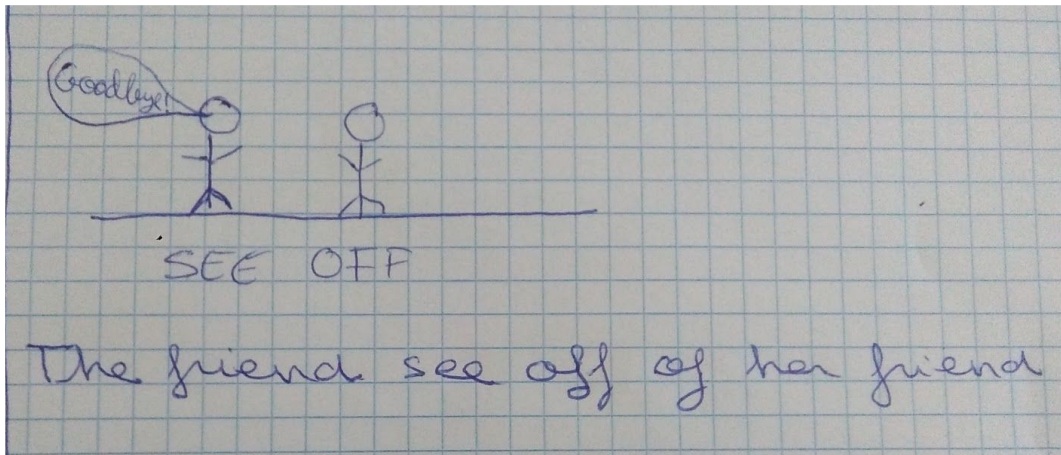 Goodbye!
SEE OFF
The friend see off of her friend